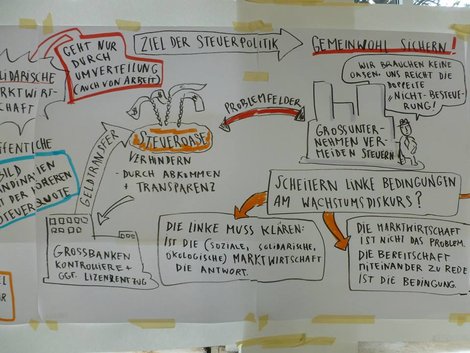 GEHT NUR
DURCH
UMVERTEILUNG
(AUCH VON ARBEIT)
ZIEL DER STEUERPOLITIK
GEMEINWOHL SICHERN!
LIDARISCHE
ARKTWIRT-
SCHAFT
FFENTLICHE
BILD
T DER HÖHEREN
STEUERQUOTE
GELDTRANSFER
STEUEROASE
VERHINDERN
- DURCH ABKOMMEN
+ TRANSPARENZ
PROBLEMFELDER
WIR BRAUCHEN KEINE
OASEN. UNS REICHT DIE
DOPPELTE
"NICHT-BESTEUE-
RUNG!
GROSSUNTER-
NEHMEN VER-
MEIDEN STEUERN
SCHEITERN LINKE BEDINGUNGEN
AM WACHSTUMSDISKURS?
GROSSBANKEN
KONTROLLIEREN +
GGF. LIZENZENTZUG
DIE LINKE MUSS KLÄREN:
IST DIE (SOZIALE, SOLIDARISCHE,
ÖKOLOGISCHE) MARKTWIRTSCHAFT
DIE ANTWORT.
DIE MARKTWIRTSCHAFT
IST NICHT DAS PROBLEM.
DIE BEREITSCHAFT
MITEINANDER ZU REDE
IST DIE BEDINGUNG.